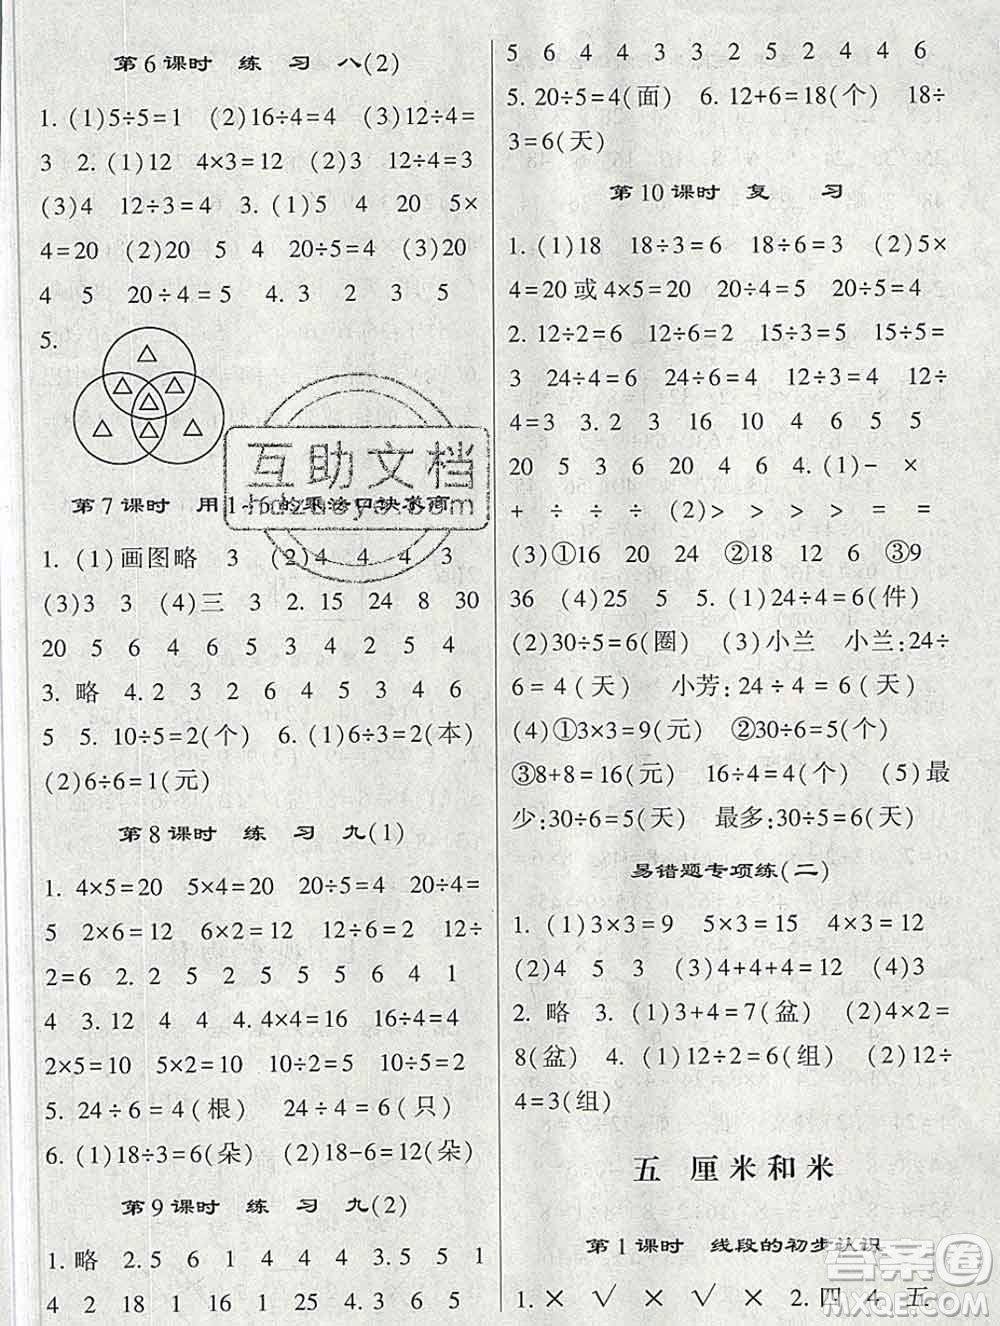 第6课时 练 习 八(2)
1. (1)5÷5=1 (2)16÷4=4 (3)12÷4=
3 2. (1)12 4×3=12 (2)3 12÷4=3
(3)4 12÷3=4 3. (1)5 4 20 5×
4=20 (2)20 5 4 20÷5=4 (3)20
4 5 20÷4=5 4. 3 2 3 5
5.
第7课时 用1~6的乘法口诀求商
1. (1)画图略 3 (2)4 4 4 3
(3)3 3 (4)三 3 2. 15 24 8 30
20 5 6 4 6 5 5 3 5 3
3. 略 4. 2 3 2 6 4 5 3 4 6
5 5. 10÷5=2(个) 6. (1)6÷3=2(本)
(2)6÷6=1(元)
第8课时 练 习 九(1)
1. 4×5=20 5×4=20 20÷5=4 20÷4=
5 2×6=12 6×2=12 12÷6=2 12÷
2=6 2. 2 5 2 5 5 5 6 4 1
4 3. 12 4 4 4. 4×4=16 16÷4=4
2×5=10 5×2=10 10÷2=5 10÷5=2
5. 24÷6=4(根) 24÷4=6(只)
6. (1)18÷3=6(朵) (2)18-6=12(朵)
第9课时 练 习 九(2)
1. 略 2. 5 6 1 4 4 4 3. 5 5 1
4 2 18 1 10 16 25 4. 3 6 5
5 6 4 6 3 3 2 5 2 4 4 6
5. 20÷5=4(面) 6. 12+6=18(个) 18÷
3=6(天)
第10课时 复 习
1. (1)18 18÷3=6 18÷6=3 (2)5×
4=20或4×5=20 20÷4=5 20÷5=4
2. 12÷2=6 12÷6=2 15÷3=5 15÷5=
3 24÷4=6 24÷6=4 12÷3=4 12÷
4=3 3. 2 3 16 10 4 6 5 5
20 5 12 6 6 4 4. (1)- ×
+ ÷ ÷ ÷ (2)> > > > = =
(3)①16 20 24 ②18 12 6 ③9
36 (4)25 5 5. (1)24÷4=6(件)
(2)30÷5=6(圈) (3)小兰 小兰:24÷
6=4(天) 小芳:24÷4=6(天)
(4)①3×3=9(元) ②30÷6=5(个)
③8+8=16(元) 16÷4=4(个) (5)最
少:30÷6=5(天) 最多:30÷5=6(天)
易错题专项练(二)
1. (1)3×3=9 5×3=15 4×3=12
(2)4 5 3 (3)4+4+4=12 (4)3
2. 略 3. (1)3+4=7(盆) (2)4×2=
8(盆) 4. (1)12÷2=6(组) (2)12÷
4=3(组)
五 厘米和米
第1课时 线段的初步认识
1. × √ × √ × 2. 四 4 五
互助文档
答案圈
MXQE.COM